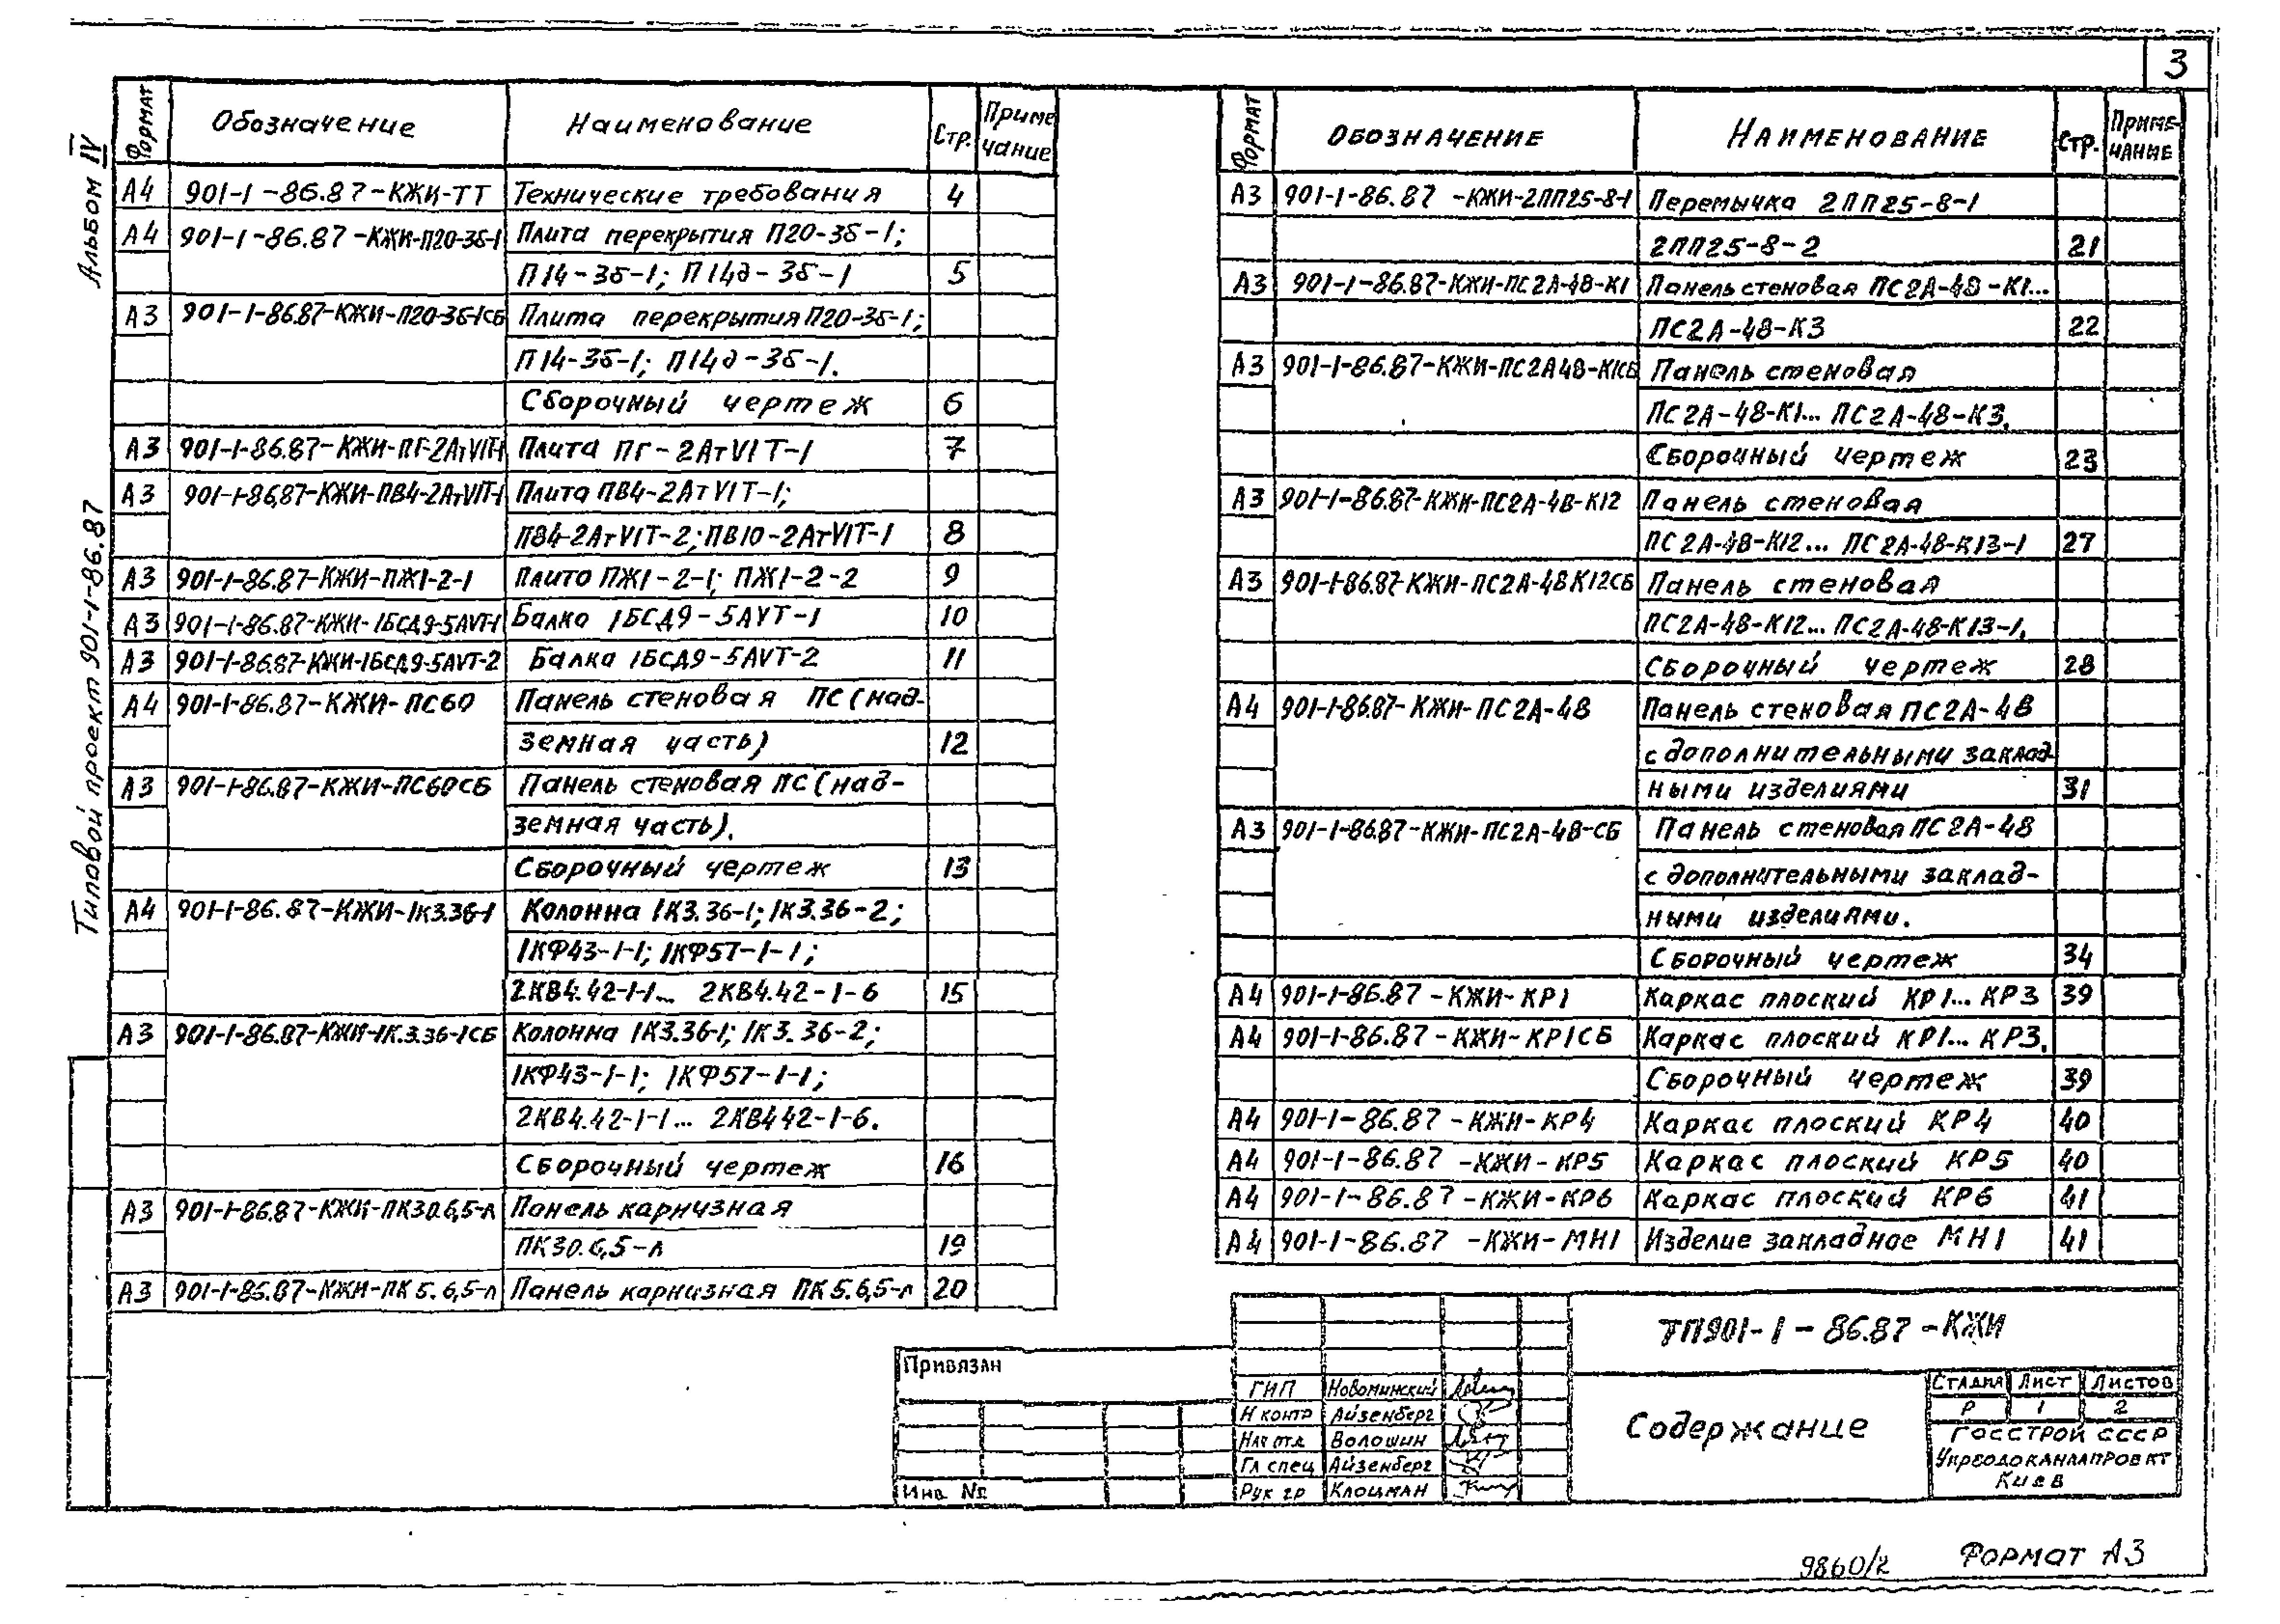 3
Альбом IV
Типовой проект 901-1-86.87
Формат Обозначение Наименование Стр. Примечание
А4 901-1-86.87-КЖИ-ТТ Технические требования 4
А4 901-1-86.87-КЖИ-П20-3б-1 Плита перекрытия П20-3б-1;
П14-3б-1; П14д-3б-1 5
А3 901-1-86.87-КЖИ-П20-3б-1СБ Плита перекрытия П20-3б-1;
П14-3б-1; П14д-3б-1.
Сборочный чертеж 6
А3 901-1-86.87-КЖИ-ПГ-2АтVIТ-1 Плита ПГ-2АтVIТ-1 7
А3 901-1-86.87-КЖИ-ПВ4-2АтVIТ-1 Плита ПВ4-2АтVIТ-1;
ПВ4-2АтVIТ-2; ПВ10-2АтVIТ-1 8
А3 901-1-86.87-КЖИ-ПЖ1-2-1 Плита ПЖ1-2-1; ПЖ1-2-2 9
А3 901-1-86.87-КЖИ-1БСД9-5АVТ-1 Балка 1БСД9-5АVТ-1 10
А3 901-1-86.87-КЖИ-1БСД9-5АVТ-2 Балка 1БСД9-5АVТ-2 11
А4 901-1-86.87-КЖИ-ПС60 Панель стеновая ПС (над-
земная часть) 12
А3 901-1-86.87-КЖИ-ПС60СБ Панель стеновая ПС (над-
земная часть).
Сборочный чертеж 13
А4 901-1-86.87-КЖИ-1К3.36-1 Колонна 1К3.36-1; 1К3.36-2;
1КФ43-1-1; 1КФ57-1-1;
2КВ4.42-1-1... 2КВ4.42-1-6 15
А3 901-1-86.87-КЖИ-1К.3.36-1СБ Колонна 1К3.36-1; 1К3.36-2;
1КФ43-1-1; 1КФ57-1-1;
2КВ4.42-1-1... 2КВ4 42-1-6.
Сборочный чертеж 16
А3 901-1-86.87-КЖИ-ПК30.6,5-л Панель карнизная
ПК30.6,5-л 19
А3 901-1-86.87-КЖИ-ПК5.6,5-л Панель карнизная ПК5.6,5-л 20
Формат Обозначение Наименование Стр. Приме-чание
А3 901-1-86.87-КЖИ-2ПП25-8-1 Перемычка 2ПП25-8-1
2ПП25-8-2 21
А3 901-1-86.87-КЖИ-ПС2А-48-К1 Панель стеновая ПС2А-48-К1...
ПС2А-48-К3 22
А3 901-1-86.87-КЖИ-ПС2А48-К1СБ Панель стеновая
ПС2А-48-К1... ПС2А-48-К3.
Сборочный чертеж 23
А3 901-1-86.87-КЖИ-ПС2А-48-К12 Панель стеновая
ПС2А-48-К12... ПС2А-48-К13-1 27
А3 901-1-86.87-КЖИ-ПС2А-48К12СБ Панель стеновая
ПС2А-48-К12... ПС2А-48-К13-1.
Сборочный чертеж 28
А4 901-1-86.87-КЖИ-ПС2А-48 Панель стеновая ПС2А-48
с дополнительными заклад-
ными изделиями 31
А3 901-1-86.87-КЖИ-ПС2А-48-СБ Панель стеновая ПС2А-48
с дополнительными заклад-
ными изделиями.
Сборочный чертеж 34
А4 901-1-86.87-КЖИ-КР1 Каркас плоский КР1... КР3 39
А4 901-1-86.87-КЖИ-КР1СБ Каркас плоский КР1... КР3.
Сборочный чертеж 39
А4 901-1-86.87-КЖИ-КР4 Каркас плоский КР4 40
А4 901-1-86.87-КЖИ-КР5 Каркас плоский КР5 40
А4 901-1-86.87-КЖИ-КР6 Каркас плоский КР6 41
А4 901-1-86.87-КЖИ-МН1 Изделие закладное МН1 41
Привязан
Инв №
ТП901-1-86.87-КЖИ
ГИП Новоминский
Н контр Айзенберг
Нач отд Волошин
Гл спец Айзенберг
Рук гр Клоцман
Содержание
Стадия Лист Листов
Р 1 2
Госстрой СССР
Укрводоканалпроект
Киев
9860/2
Формат А3